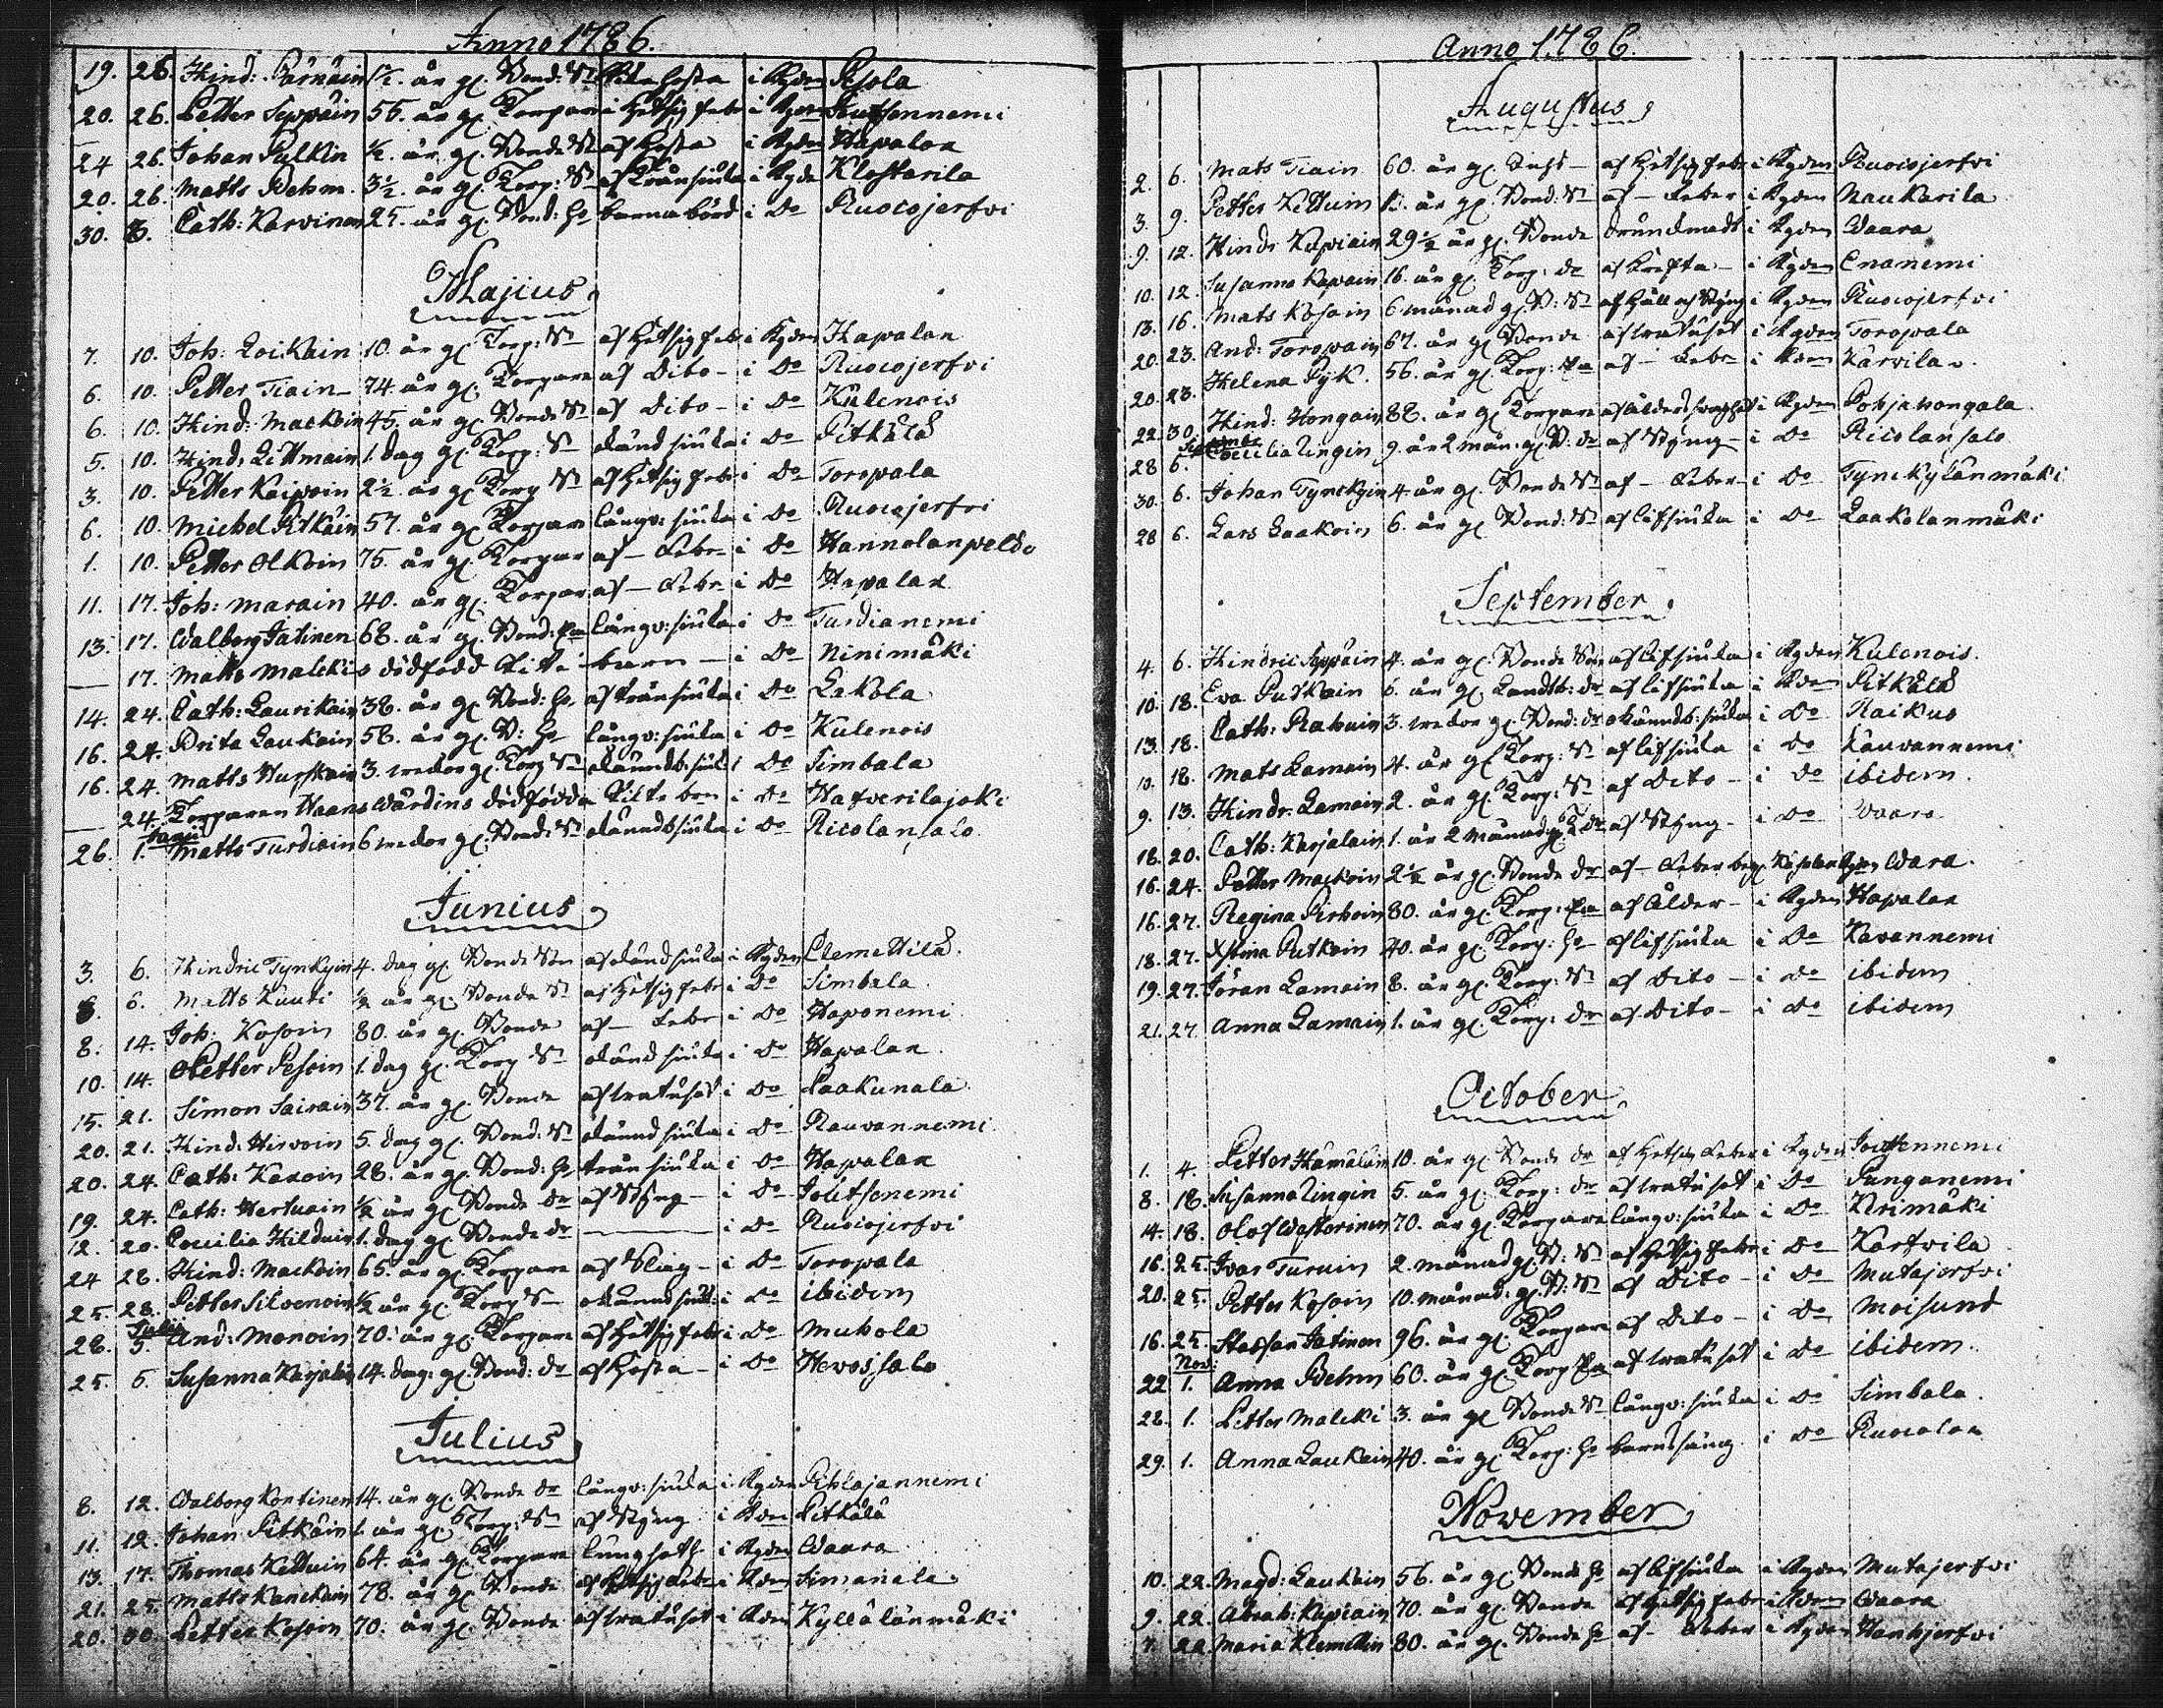 Anno 1786.
19. 26. Hind: Pärnäin 1/2. år gl. Bond: Sn hosta i Kyden Pesola
20. 26. Petter Seppäin 55. år gl. Torpare i hetsig feb: i Kyden Joutsennemi
24 26. Johan Pulkin 1/2. år gl. Bonde Sn af hosta i Kyden Hapalax
20. 26. Matts Behm. 3 1/2. år gl. Torp: Sn af trånsiuka i Kyde Klostarila
30. 3. Cath: Karvinen 25. år gl. Bond: Ho barnabörd i Do Ruocojerfvi
Majius
7. 10. Joh: Loikain 10. år gl Torp: Sn af hetsig feb: i Kyden Hapalax
6. 10. Petter Tiain 74. år gl. Torpare af Dito i Do Ruocojerfvi
6. 10. Hind: Mackoin 45. år gl. Bonde Sn af Dito i Do Kulenois
5. 10. Hind: Littmain 1. dag gl. Torp: Sn okänd siuka i Do Pitkälä
3. 10. Petter Kaipoin 2 1/2. år gl Torp Sn af hetsig febr i Do Toropala
6. 10. Michel Pitkäin 57. år gl. Torpare långv: siuka i Do Ruocojerfvi
1. 10. Petter Olkoin 75. år gl. Torpar af Febr i Do Hannolanpeldo
11. 17. Joh: Marain 40. år gl. Torpar af Febr i Do Hapalax
13. 17. Walborg Jatinen 68. år gl. Bond: Ea långv: siuka i Do Turdianemi
— 17. Matts Maleki s dödfödd barn i Do Ninimäki
14. 24. Cath: Laurikain 38. år gl Bond: Ho af trånsiuka i Do Lakola
16. 24. Brita Laukain 58. år gl. B: Ho långv: siuka i Do Kulenois
16. 24. Matts Hurskain 3. weckor gl. Torp Sn okändb: siuk i Do Simbala
— 24. Torparen Haans Wärdins dödfödda i Do Hatverilajoki
26. Junii 1. Matts Turdiain 6 weckor gl: Bond: Sn okändbsiuka i Do Ricolansalo
Junius
3. 6. Hindric Tynkyin 4. dag gl Bonde Son af okändsiuka i Kyden Clemettilä.
8. 6. Matts Kuuti 1/2 år gl. Bonde Sn af hetsig febr i Do Simbala
8. 14. Joh: Kosoin 80. år gl. Bonde af Febr i Do Haponemi
10. 14. Petter Pesoin 1. dag gl. Torp Sn okänd siuka i Do Hapalax
15. 21. Simon Sairain 37. år gl. Bonde af bråtuset i Do Laakunala
20. 21. Hind: Hirvoin 5. dag gl. Bond: Sn okänd siuka i Do Rauvannemi
20. 24. Cath: Kaxoin 28. år gl. Bond: Ho trånsiuka i Do Hapalax
19. 24. Cath: Hertuain 1/2 år gl Bonde Dr af Styng i Do Joutsenemi
12. 20. Coecilia Hilduin 1. dag gl Bonde dr — i Do Ruocojerfvi
24 28. Hind: Mackoin 65. år gl Torpare af Slag i Do Toropala
25. 28. Petter Silvenoin 1/2 år gl Torp Sn okännd siuk: i Do ibidem
28. Julii 5. And: Monoin 70. år gl. Torpare af hetsig febr i Do Muhola
25. 5. Susanna Karjalain 14. dag: gl. Bond: dr af hosta i Do Hevossalo
Julius
8. 12. Walborg Kontinen 14. år gl. Bonde dr långv: siuka i Kyden Pihlajannemi
11. 12. Johan Pitkäin 1. år gl. Torp: Sn af Styng i Kden Pitkälä
13. 17. Thomas Kettuin 64. år gl. Torpare lungsoth i Kyden Waara
21. 25. Matts Kanckain 78. år gl. Bonde af hetsig febr i Kden Simanala
20. 30. Petter Kosoin 70. år gl. Bonde af bråtuset i Kden Kyllälänmäki
Anno 1786.
Augustus
2. 6. Mats Tiain 60. år gl. af hetsig febr i Kyden Ruocojerfvi
3. 9. Petter Kettuin 13. år gl. Bond: Sn af Feber i Kyden Naukarila
9. 12. Hindr Kapiain 29 1/2 år gl. Bonde drunknadt i Kyden Waara
10. 12. Susanna Kapain 16. år gl Torp: dr af Kräfta i Kyden Enanemi
13. 16. Mats Kosoin 6 månad gl. B: Sn af håll och styng i Kyden Ruocojerfvi
20. 23. And: Toropain 67. år gl Bonde af bråtuset i Kyden Toropala
20. 23. Helena Pyk. 56. år gl Torp: Ea af Febr i Kden Kärvilax.
22. 30. Hind: Hongain 88. år gl Torpare af ålderd: svaghet i Kyden Pohjahongala
28 Septemb 6. Coecilia Zingin 9. år 2 mån: gl B: dr af Styng i Do Ricolansalo
30. 6. Johan Tynckyin 4 år gl. Bonde Sn af Feber i Do Tynckylänmäki
28 6. Lars Laakoin 6. år gl Bond: Sn af lifsiuka i Do Laakolanmäki
September
4. 6. Hindric Seppäin 4. år gl. Bonde Son af lifsiuka i Kyden Kulenois.
10. 18. Eva Putkain 6. år gl Landsb: dr af lifsiuka i Kden Pitkälä
13. 18. Cath: Rahuin 3. weckor gl. Bond: dr okänndb: siuka i Do Raikus
10. 18. Mats Lamain 4. år gl Torp: Sn af lifsiuka i Do Rauvannemi
9. 13. Hindr. Lamain 2. år gl. Torp: Sn af Dito i Do ibidem
18. 20. Cath: Karjalain 1. år 2 månad gl. T dr af Styng i Do Waara
16. 24. Petter Mackoin 2 1/2 år gl. Bonde dr af Feber i Kyden Wara.
16. 27. Regina Pirhoin 80. år gl. Torp: Ea af Ålder i Kyden Hapalax
18. 27. Xstina Putkoin 40. år gl. Torp: Ho af lifsiuka i Do Ravannemi
19. 27. Jöran Lamain 8. år gl. Torp: Sn af Dito i Do ibidem
21. 27. Anna Lamain 1. år gl. Torp: dr af Dito i Do ibidem
October
1. 4. Petter Hämäläin 10. år gl Bonde dr af Hetsig Feber i Kyden Joutsennemi
8. 18. Susanna Zingin 5. år gl. Torp: dr af bråtuset i Do Punganemi
14. 18. Olof Westerinen 70. år gl Torpare långv: siuka i Do Kerimäki
16. 25. Ivar Turuin 2. månad gl. B: Sn af hetsig febr i Do Kortvila
20. 25. Petter Kosoin 10. månad: gl. B: Sn af Dito i Do Mutajerfvi
16. 25. Staffan Jatinen 96. år gl. Torpare af Dito i Do Moisund
22 Nov: 1. Anna Behm 60. år gl. Torp Ea af bråtuset i Do ibidem.
28. 1. Petter Maleki 3. år gl Bonde Sn långv: siuka i Do Simbala.
29. 1. Anna Laukain 40. år gl Torp: Ho barnsäng i Do Ruocolax
November
10. 22. Magd: Laukain 56. år gl Bonde Ho af lifsiuka i Kyden Mutajerfvi
9. 22. Abrah: Kapiain 70. år gl. Bonde af hetsig febr i Kden Waara
7. 22. Maria Klemettin 80. år gl. Bonde Ho af Feber i Kyden Hanhijerfvi